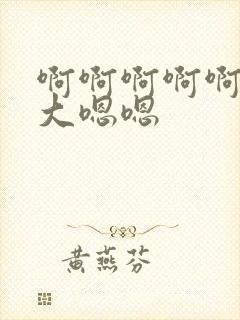 啊啊啊啊啊
大嗯嗯
黄燕芬